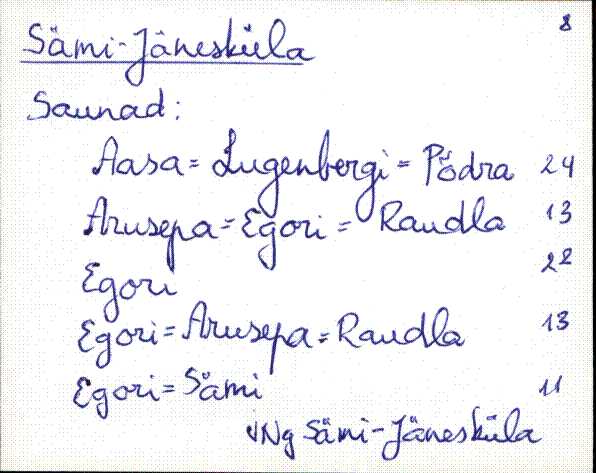 8
Sämi-Jänesküla
Saunad:
Aasa = Lugenbergi = Põdra 24
Arusepa = Egori = Raudla 13
Egori 22
Egori = Arusepa = Raudla 13
Egori = Sämi 11
VNg Sämi-Jänesküla